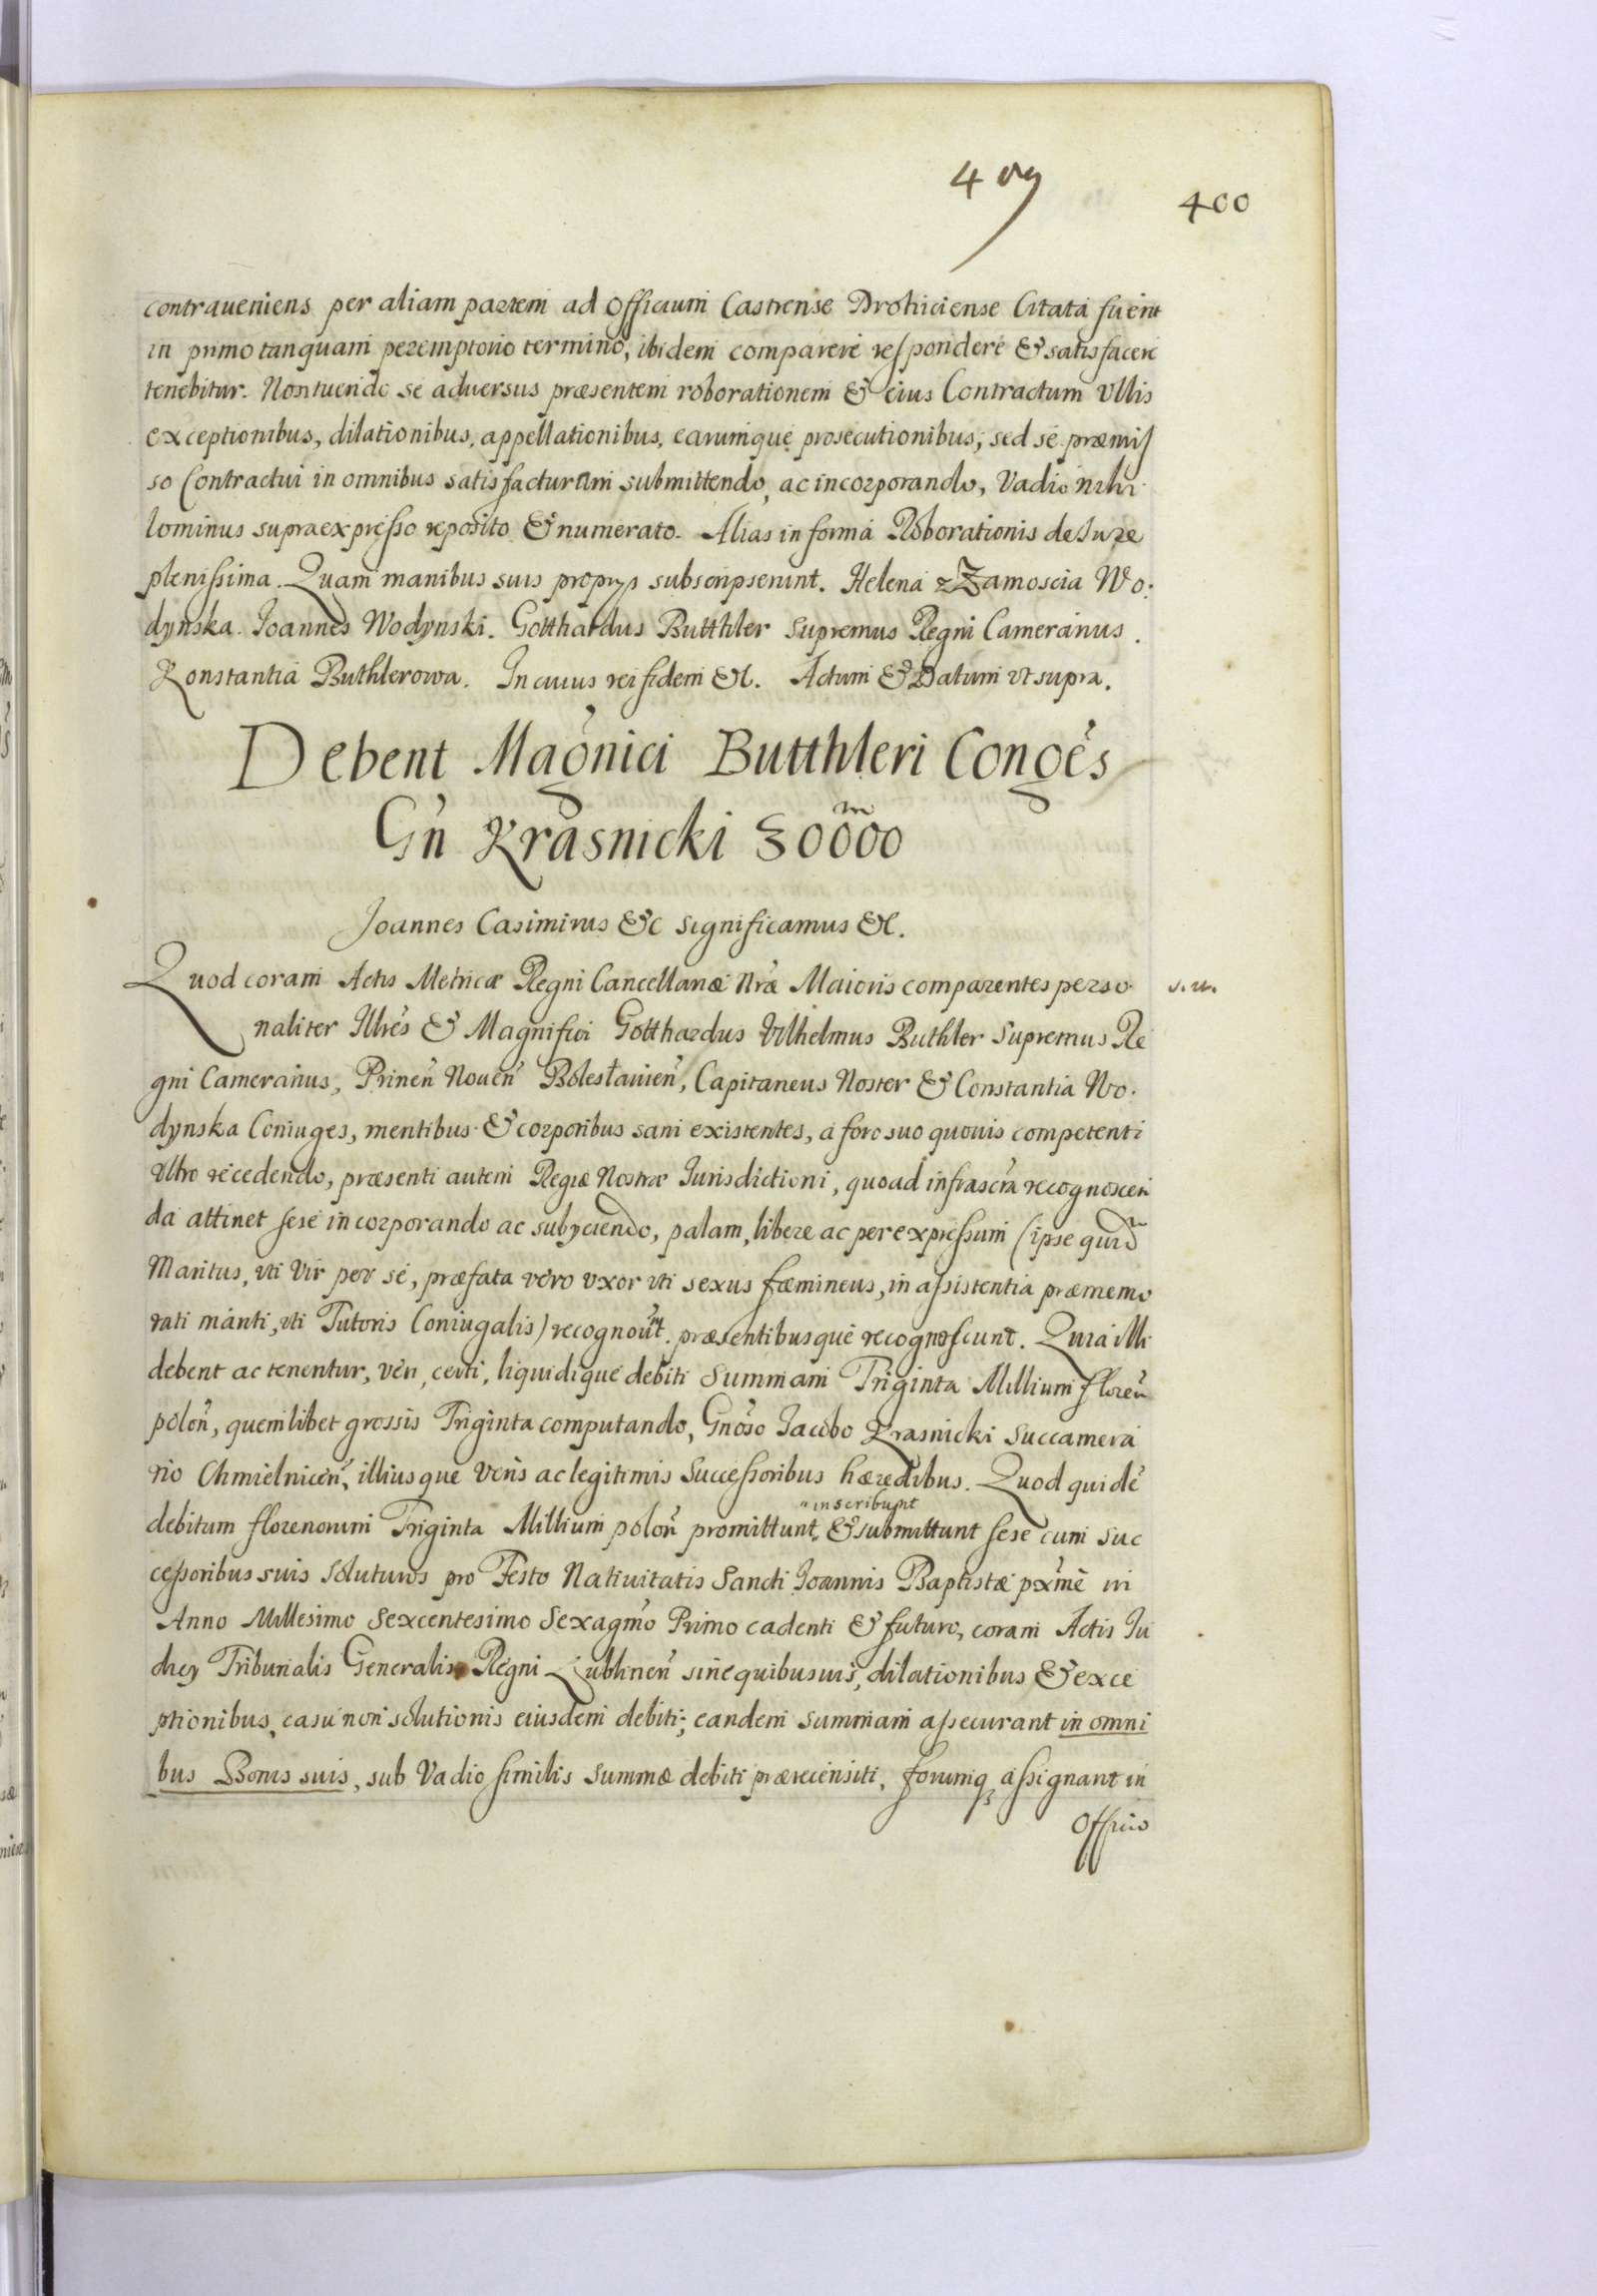 409
400
contraueniens per aliam partem ad Officium Castrense Drohiciense Citata fuerit
in primo tanquam peremptorio termino, ibidem comparere respondere & satisfacere
tenebitur. Non tuendo se aduersus præsentem roborationem & eius Contractum Vllis
exceptionibus, dilationibus, appellationibus, earumque prosecutionibus, sed se præmis
so Contractui in omnibus satisfacturum submittendo, ac incorporando, Vadio nihi
lominus supraexpresso reposito & numerato. Alias in forma Roborationis de Jure
plenissima. Quam manibus suis proprys subscripserunt. Helena z Zamoscia Wo:
dynska. Joannes Wodynski. Gotthardus Butthler Supremus Regni Camerarius.
Konstantia Buthlerowa. In cuius rei fidem &c. Actum & Datum vt supra.
Debent Magnici Butthleri Conges
Gn Krasnicki 30000 m
Joannes Casimirus &c significamus &c.
Quod coram Actis Metricæ Regni Cancellariæ Nræ Maioris comparentes perso
naliter Illres & Magnifici Gotthardus Vilhelmus Buthler Supremus Re
gni Camerarius, Prinen Nouen Bolesłauien, Capitaneus Noster & Constantia Wo.
dynska Coniuges, mentibus & corporibus sani existentes, a foro suo quouis competenti
vltro recedendo, præsenti autem Regiæ Nostræ Jurisdictioni, quoad infrascra recognoscen
da attinet sese incorporando ac subyciendo, palam, libere ac per expressum (ipse quid
Maritus, vti Vir per se, præfata vero vxor vti sexus fæmineus, in assistentia præmemo
rati mariti, vti Tutoris Coniugalis) recognount præsentibusque recognoscunt. Quia illi
debent ac tenentur, veri, certi, liquidique debiti Summam Triginta Millium floren
polon, quemlibet grossis Triginta computando, Gnoso Jacobo Krasnicki Succamera
rio Chmielnicen, illiusque Veris ac legitimis Successoribus hæredibus. Quod quide
debitum florenorum Triginta Millium polon promittunt, inscribunt & submittunt sese cum suc
cessoribus suis soluturos pro Festo Natiuitatis Sancti Joannis Baptistæ pxme in
Anno Millesimo Sexcentesimo Sexagmo Primo cadenti & futuro, coram Actis Ju
dicy Tribunalis Generalis Regni Lublinen sine quibusuis, dilationibus & exce
ptionibus, casu non solutionis eiusdem debiti; eandem summam assecurant in omni
bus Bonis suis, sub Vadio similis summæ debiti prærecensiti, forumq assignant in
Officio